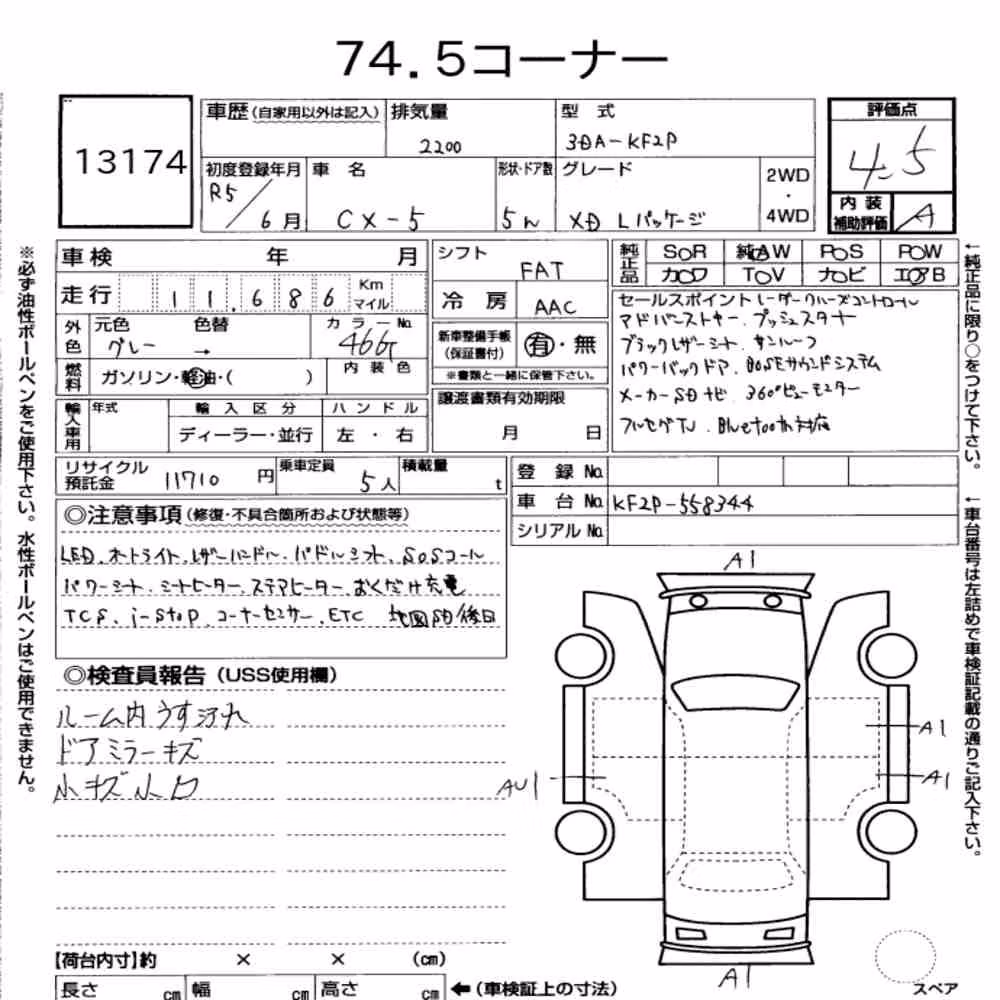 74.5コーナー
13174
車歴(自家用以外は記入) 排気量 2200 型式 3DA-KF2P
評価点 4.5
初度登録年月 R5/6月 車名 CX-5 形状・ドア数 5 グレード XD Lパッケージ 2WD・4WD
内装補助評価 A
車検 年 月
シフト FAT
純正品 SOR 純AW POS POW
カロワ TOV ナビ エアB
走行 11,686 Km マイル
冷房 AAC
外色 元色 グレー 色替 → カラーNo. 46G 内装色
新車整備手帳(保証書付) 有・無
※書類と一緒に保管下さい。
燃料 ガソリン・軽油・( )
譲渡書類有効期限 月 日
輸入車用 年式 輸入区分 ディーラー・並行 ハンドル 左・右
セールスポイント レーダークルーズコントロール
アドバンストキー、プッシュスタート
ブラックレザーシート、サンルーフ
パワーバックドア、BOSEサウンドシステム
メーカーSDナビ、360°ビューモニター
フルセグTV、Bluetooth対応
リサイクル預託金 11710円 乗車定員 5人 積載量 t
登録No.
車台No. KF2P-558344
シリアルNo.
◎注意事項(修復・不具合箇所および状態等)
LED、オートライト、レザーハンドル、パドルシフト、SOSコール
パワーシート、シートヒーター、ステアヒーター、おくだけ充電
TCS、i-stop、コーナーセンサー、ETC 地図SD後日
◎検査員報告(USS使用欄)
ルーム内うす汚れ
ドアミラーキズ
小キズ小凹
A1
A1
A1
AU1
A1
【荷台内寸】約 × × (cm)
長さ cm 幅 cm 高さ cm ←(車検証上の寸法)
スペア
※必ず油性ボールペンをご使用下さい。水性ボールペンはご使用できません。
←純正品に限り○をつけて下さい。
←車台番号は左詰めで車検証記載の通りご記入下さい。